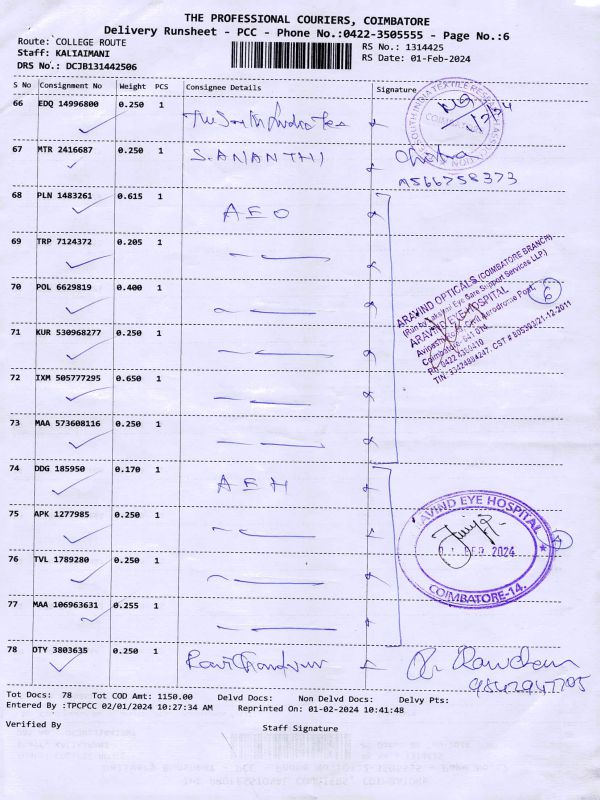 THE PROFESSIONAL COURIERS, COIMBATORE
Delivery Runsheet - PCC - Phone No.:0422-3505555 - Page No.:6
Route: COLLEGE ROUTE RS No.: 1314425
Staff: KALIAIMANI RS Date: 01-Feb-2024
DRS No.: DCJB131442506
S No Consignment No Weight PCS Consignee Details Signature
66 EDQ 14996800 0.250 1 The South India Tex
67 MTR 2416687 0.250 1 S.ANANTHI
9566758373
68 PLN 1483261 0.615 1 AEO
69 TRP 7124372 0.205 1
70 POL 6629819 0.400 1
71 KUR 530968277 0.250 1
72 IXM 505777295 0.650 1
73 MAA 573608116 0.250 1
ARAVIND OPTICALS (COIMBATORE BRANCH)
ARAVIND EYE HOSPITAL
6
74 DDG 185950 0.170 1 AEH
75 APK 1277985 0.250 1
76 TVL 1789280 0.250 1
77 MAA 106963631 0.255 1
ARAVIND EYE HOSPITAL
01 FEB 2024
COIMBATORE-14.
78 OTY 3803635 0.250 1 Ravichandran
Tot Docs: 78 Tot COD Amt: 1150.00 Delvd Docs: Non Delvd Docs: Delvy Pts:
Entered By :TPCPCC 02/01/2024 10:27:34 AM Reprinted On: 01-02-2024 10:41:48
Verified By Staff Signature